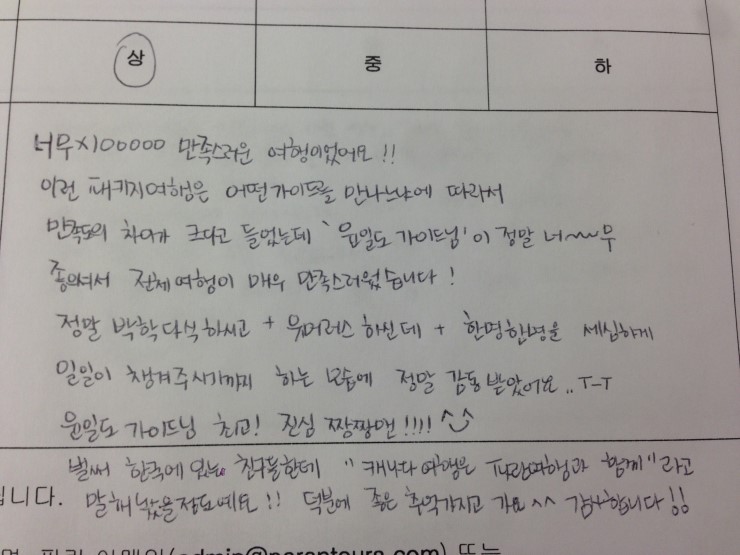 상 중 하
너무×100000 만족스러운 여행이었어요 !!
이런 패키지여행은 어떤가이드를 만나느냐에 따라서
만족도의 차이가 크다고 들었는데 '윤일도 가이드님'이 정말 너~~무
좋으셔서 전체여행이 매우 만족스러웠습니다 !
정말 박학다식하시고 + 유머러스 하신데 + 한명한명을 세심하게
일일이 챙겨주시기까지 하는 모습에 정말 감동받았어요.. T-T
윤일도 가이드님 최고! 진심 짱짱맨!!!! ^^
벌써 한국에 있는 친구들한테 "캐나다 여행은 파란여행과 함께"라고
니다. 말해놨을정도예요 !! 덕분에 좋은 추억가지고 가요 ^^ 감사합니다 !!